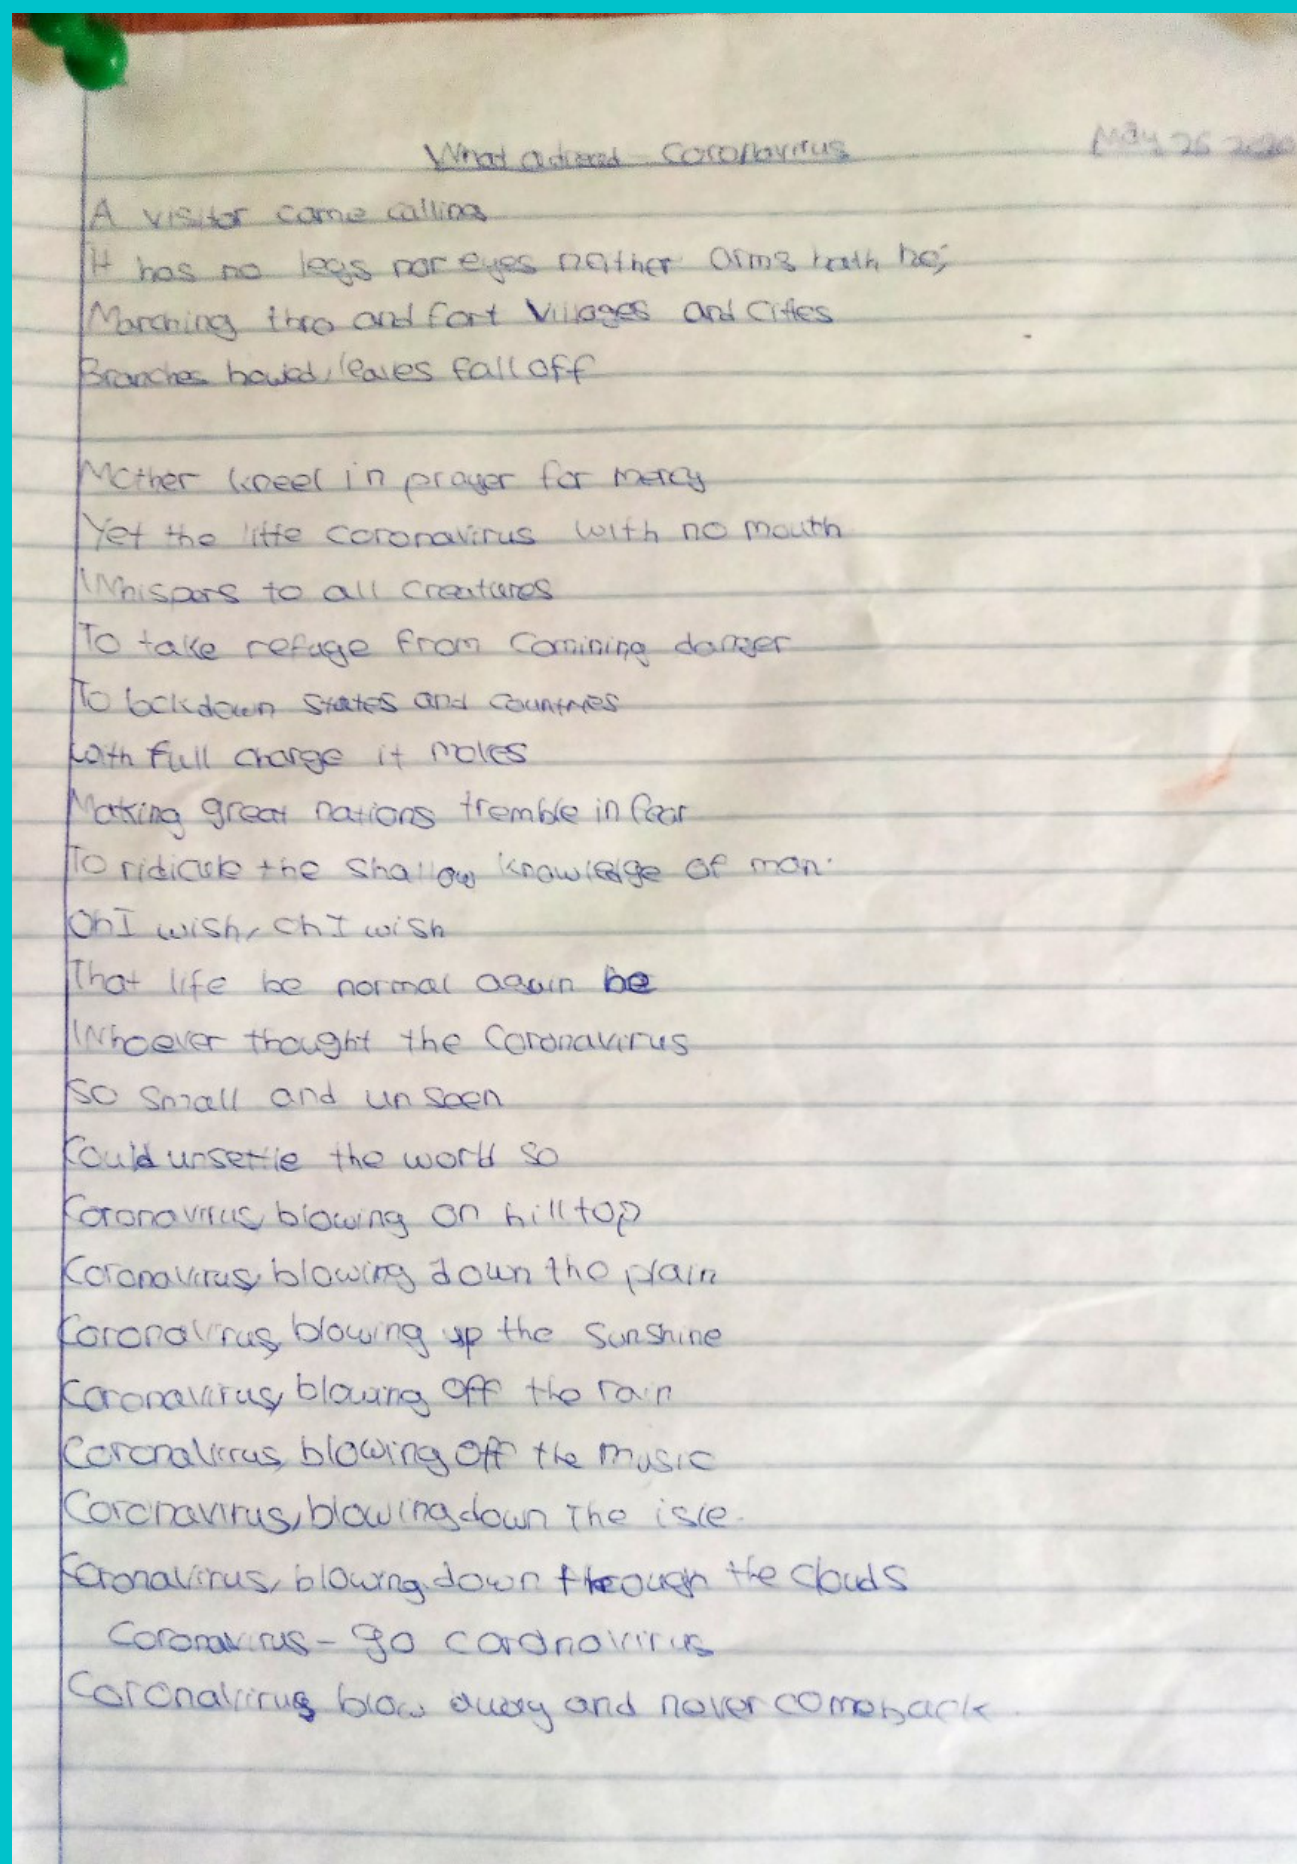 What a dread - Coronavirus
May 26 2020
A visitor came calling
It has no legs nor eyes neither arms hath he;
Marching thro and fort Villages and Cities
Branches bowed, leaves fall off
Mother kneel in prayer for mercy
Yet the litte coronavirus with no mouth
Whispers to all creatures
To take refuge from Comining danger
To lockdown states and countries
with full charge it moves
Making great nations tremble in fear
To ridicule the shallow knowledge of man.
Oh I wish, Oh I wish
That life be normal again be
Whoever thought the Coronavirus
So small and un seen
Could unsettle the world so
Coronavirus, blowing on hill top
Coronavirus, blowing down the plain
Coronavirus, blowing up the Sunshine
Coronavirus, blowing off the rain
Coronavirus, blowing off the music
Coronavirus, blowing down The isle.
Coronavirus, blowing down through the clouds
Coronavirus - go cordnovirus
Coronavirus, blow away and never comeback.